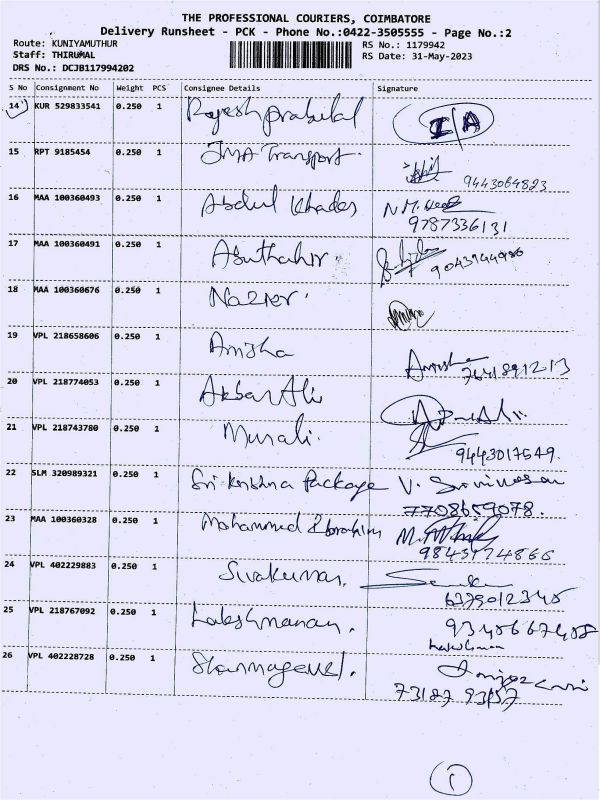 THE PROFESSIONAL COURIERS, COIMBATORE
Delivery Runsheet - PCK - Phone No.:0422-3505555 - Page No.:2
Route: KUNIYAMUTHUR RS No.: 1179942
Staff: THIRUMAL RS Date: 31-May-2023
DRS No.: DCJB117994202
S No Consignment No Weight PCS Consignee Details Signature
14 KUR 529833541 0.250 1 I/A
15 RPT 9185454 0.250 1 JMA Transport. 9443064823
16 MAA 100360493 0.250 1 Abdul Khader N.M.
9787336131
17 MAA 100360491 0.250 1 Abuthahir.
18 MAA 100360676 0.250 1 Nazier.
19 VPL 218658606 0.250 1 Anisha Anisha
7641891213
20 VPL 218774053 0.250 1 Akbar Ali
21 VPL 218743780 0.250 1 Murali.
9443017549.
22 SLM 320989321 0.250 1 Sri Krishna Package V. Srinivasan
7708659078.
23 MAA 100360328 0.250 1 Mohammed Ibrahim
9843174866
24 VPL 402229883 0.250 1 Sivakumar.
6379012345
25 VPL 218767092 0.250 1 Lakshmanan.
26 VPL 402228728 0.250 1 Shanmugavel.
1